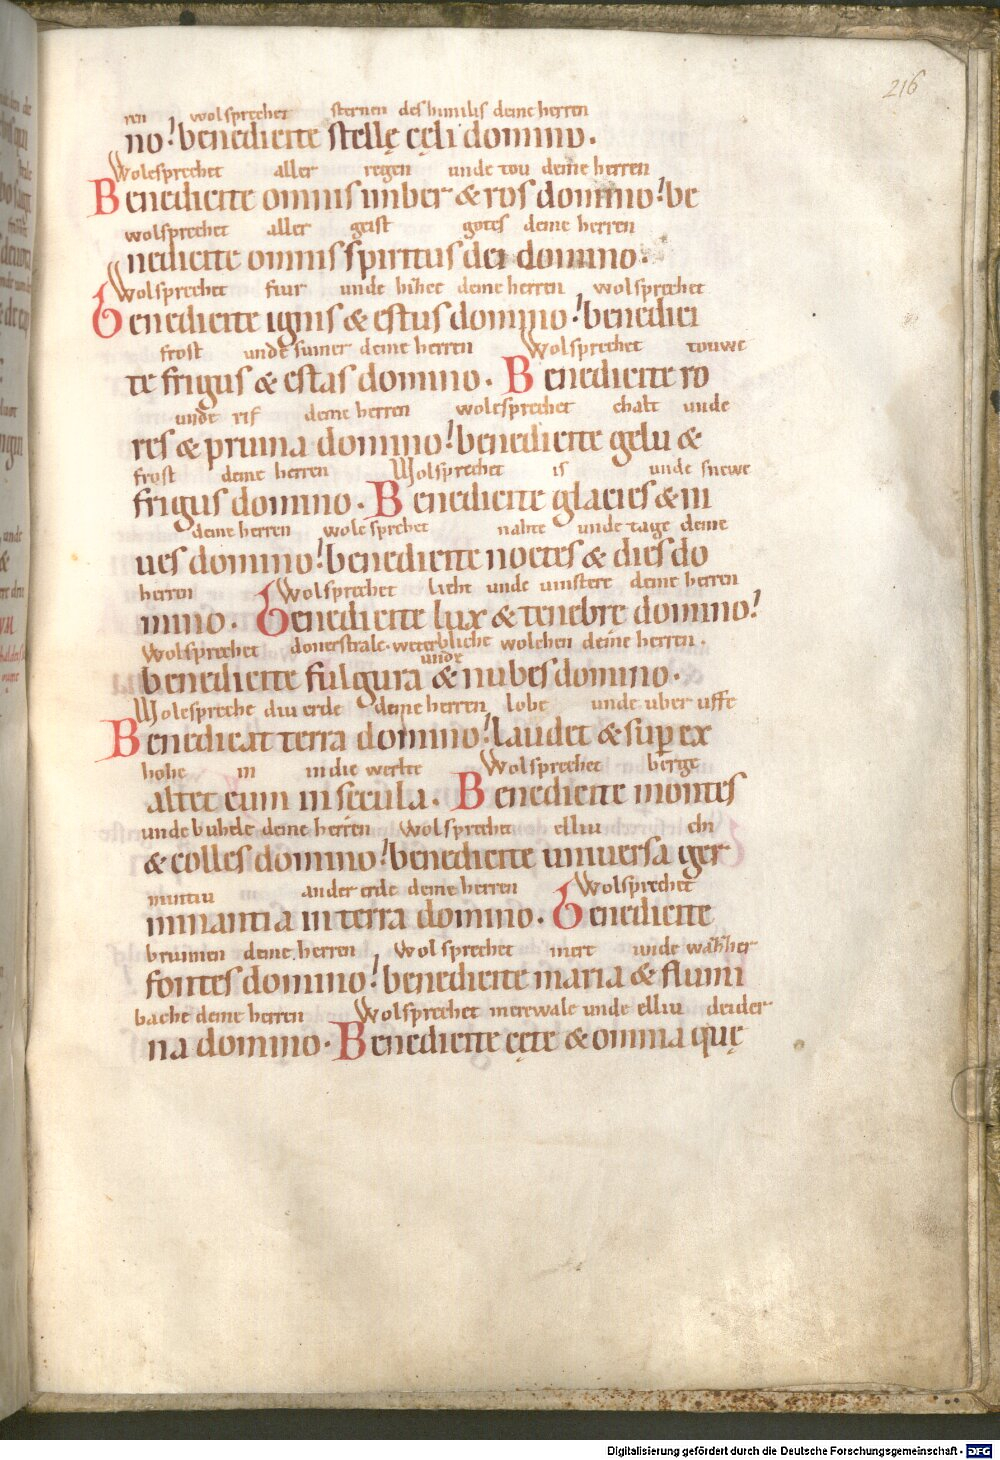 216
ren wolsprechet sternen des himilis deine herren
no! benedicite stellę cęli domino.
Wolesprechet aller regen unde tou deine herren
Benedicite omnis imber & ros domino! be
wolsprechet aller geist gotes deine herren
nedicite omnis spiritus dei domino.
Wolsprechet fiur unde hihet deine herren wolsprechet
Benedicite ignis & estus domino! benedici
frost unde sumer deine herren Wolsprechet touwe
te frigus & estas domino. Benedicite ro
unde rif deine herren wolesprechet chalt unde
res & pruina domino! benedicite gelu &
frost deine herren Wolsprechet is unde snewe
frigus domino. Benedicite glacies & ni
deine herren wolesprechet nahte unde tage deine
ues domino! benedicite noctes & dies do
herren Wolsprechet lieht unde uinstere deine herren
mino. Benedicite lux & tenebre domino!
Wolsprechet donerstrale. weterbliche wolchen deine herren.
unde
benedicite fulgura & nubes domino.
Wolespreche diu erde deine herren lobe unde uber uffe
Benedicat terra domino! laudet & sup ex
hohe in in die werlte Wolsprechet berge
altet eum in secula. Benedicite montes
unde buhele deine herren Wolsprechet elliu chi
& colles domino! benedicite uniuersa ger
mintiu ander erde deine herren Wolsprechet
minantia in terra domino. Benedicite
brunnen deine herren Wolsprechet mere unde
fontes domino! benedicite maria & flumi
bache deine herren Wolsprechet merewale unde elliu deider
na domino. Benedicite cęte & omnia quę
Digitalisierung gefördert durch die Deutsche Forschungsgemeinschaft - DFG